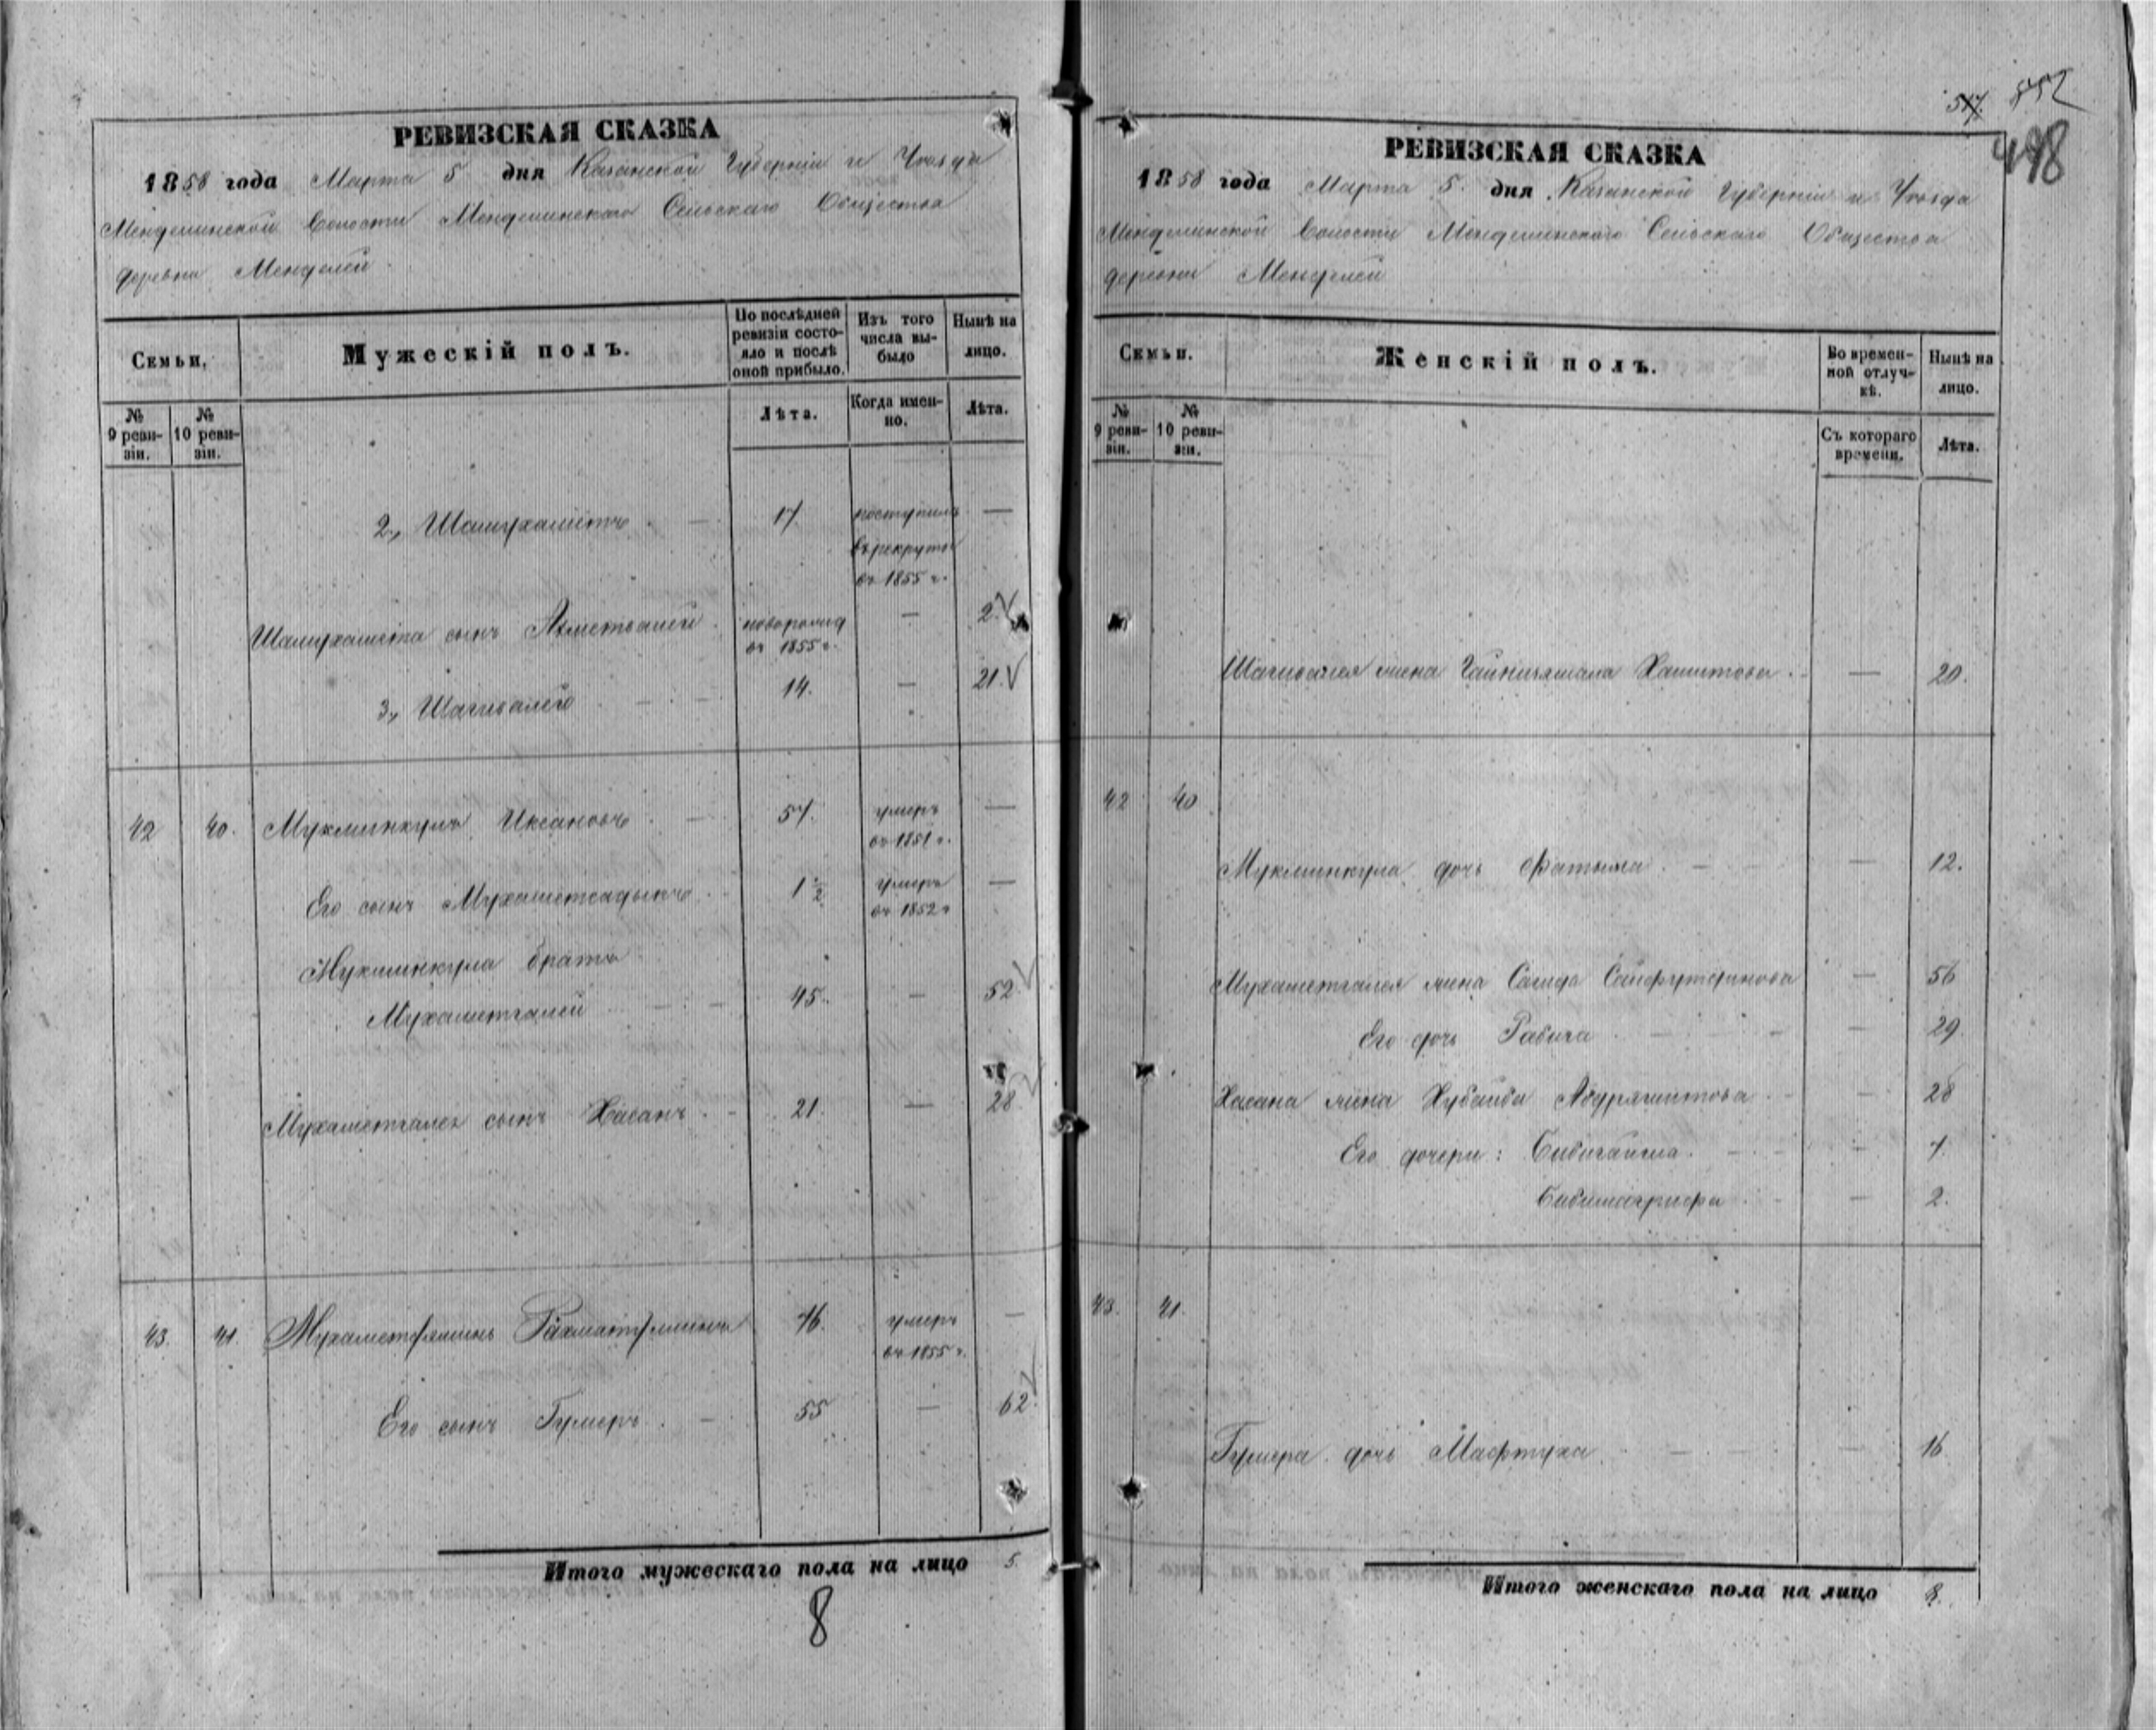 РЕВИЗСКАЯ СКАЗКА
1858 года Марта 5 дня Казанской Губерніи и Уѣзда
Менделинской Волости Менделинскаго Сельскаго Общества
деревни Менделей
Семьи,
Мужескій полъ.
По послѣдней ревизіи состояло и послѣ оной прибыло.
Изъ того числа выбыло
Нынѣ на лицо.
№ 9 ревизіи.
№ 10 ревизіи.
Лѣта.
Когда именно.
Лѣта.
2., Шамухаметъ 17 поступилъ —
въ рекруты
въ 1855 г.
Шамухамета сынъ Ахметвалей новорожд — 2
въ 1855 г.
3., Шагивалей 14. — 21.
42 40. Мукминкулъ Иксановъ 57. умеръ —
въ 1851 г.
Его сынъ Мухаметсадыкъ 1 1/2 умеръ —
въ 1852 г
Мукминкула братъ
Мухаметгалей 45. — 52
Мухаметгалея сынъ Хасанъ 21. — 28
43. 41. Мухаметряминъ 76. умеръ —
въ 1855 г.
Его сынъ Гумеръ 55 — 62.
Итого мужескаго пола на лицо 5.
8
517. 552
498
РЕВИЗСКАЯ СКАЗКА
1858 года Марта 5. дня Казанской Губерніи и Уѣзда
Менделинской Волости Менделинскаго Сельскаго Общества
деревни Менделей
Семьи.
Женскій полъ.
Во временной отлучкѣ.
Нынѣ на лицо.
№ 9 ревизіи.
№ 10 ревизіи.
Съ котораго времени.
Лѣта.
Шагивалея жена Хамитова — 20.
42 40
Мукминкула дочь Фатыма — 12.
Мухаметгалея жена Сагида Сайфутдинова — 56
Его дочь Рабига — 29.
Хасана жена Хубайба Абдряшитова — 28
Его дочери: — 7
— 2.
43. 41.
Гумера дочь Мафтуха — 16
Итого женскаго пола на лицо 8.